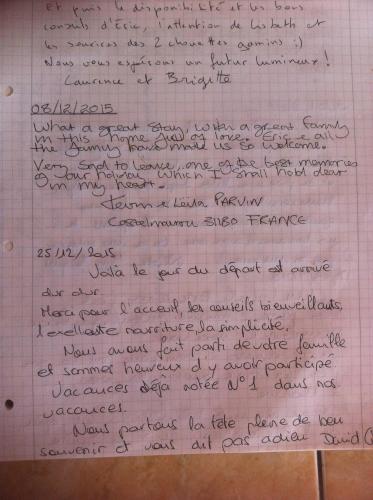 Et puis la disponibilité et les bons
conseils d'Eric, l'attention de Lisbeth et
les sourires des 2 chouettes gamins :)
Nous vous espérons un futur lumineux !
Laurence et Brigitte
08/12/2015
What a great stay, with a great family
in this home full of love. Eric & all
the family have made us so welcome.
Very sad to leave, one of the best memories
of our holiday which I shall hold dear
in my heart.
& Leila PARVIN
31180 FRANCE
25/12/2015
Voilà le jour du départ est arrivé
dur dur.
Merci pour l'acceuil, les conseils bienveillants,
l'exellente nourriture, la simplicité.
Nous avons fait parti de votre famille
et sommes heureux d'y avoir participé
Vacances déjà notée N°1 dans nos
vacances.
Nous partons la tête pleine de bon
souvenir et vous dit pas adieu David